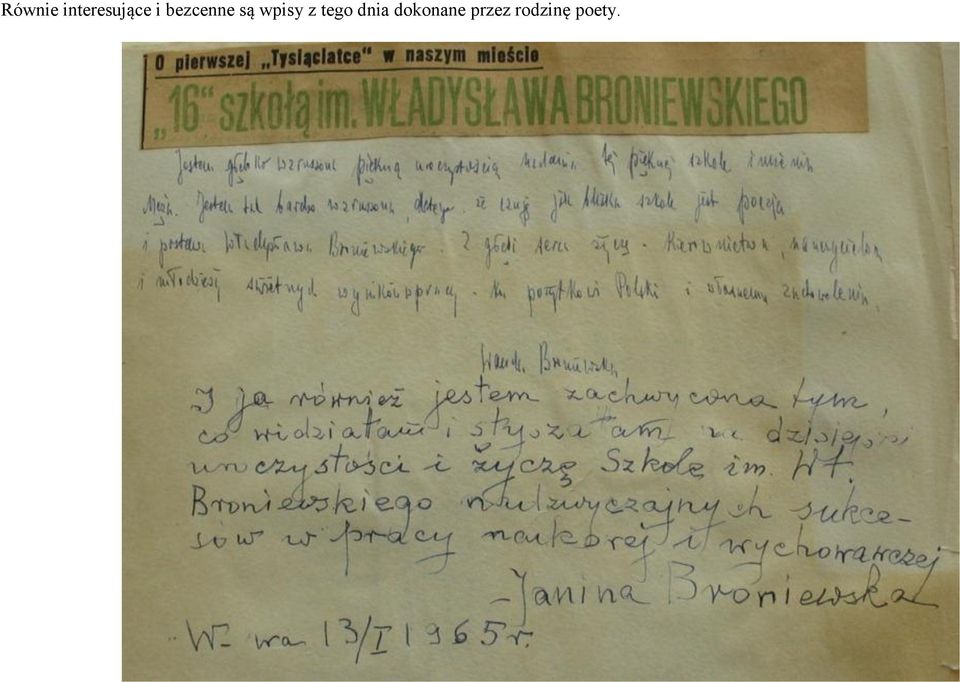 Równie interesujące i bezcenne są wpisy z tego dnia dokonane przez rodzinę poety.
O pierwszej „Tysiąclatce" w naszym mieście
„16" szkołą im. WŁADYSŁAWA BRONIEWSKIEGO
Jestem głęboko wzruszona piękną uroczystością nadania tej pięknej szkole imienia
Męża. Jestem tak bardzo wzruszona, dlatego, że czuję jak bliska szkole jest poezja
i postawa Władysława Broniewskiego. Z głębi serca życzę. Kierownictwu, nauczycielom
i młodzieży świetnych wyników w pracy. Ku pożytkowi Polski i własnemu zadowoleniu.
Wanda Broniewska
I ja również jestem zachwycona tym,
co widziałam i słyszałam na dzisiejszej
uroczystości i życzę Szkole im. Wł.
Broniewskiego nadzwyczajnych sukce-
sów w pracy naukowej i wychowawczej
– Janina Broniewska
W-wa 13/I 1965 r.